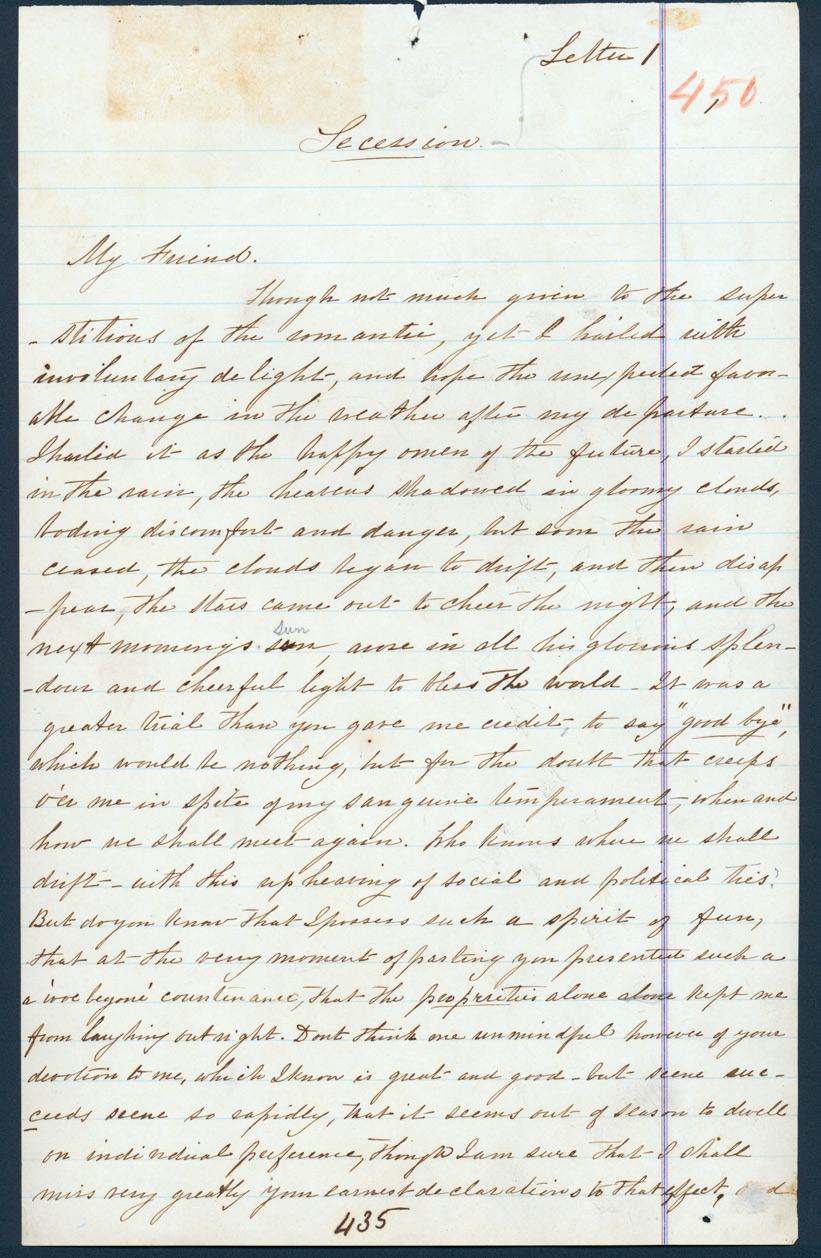 Letter 1
450
Secession.
My Friend.
Though not much given to the super
- stitions of the romantic, yet I hailed with
involuntary delight, and hope the unexpected favor-
able change in the weather after my departure.
I hailed it as the happy omen of the future, I started
in the rain, the heavens shadowed in gloomy clouds,
boding discomfort and danger, but soon the rain
ceased, the clouds began to drift, and then disap
- pear, the stars came out to cheer the night, and the
sun
next morning's sun, arose in all his glorious splen-
- dour and cheerful light to bless the world - It was a
greater trial than you gave me credit, to say "good bye",
which would be nothing, but for the doubt that creeps
o'er me in spite of my sanguine temperament, when and
how we shall meet again. Who knows where we shall
drift - with this upheaving of social and political ties?
But do you know that I possess such a spirit of fun,
that at the very moment of parting you presented such a
a 'woe begone' countenance, that the proprieties alone alone kept me
from laughing outright. Dont think me unmindful however of your
devotion to me, which I know is great and good - but scene suc-
ceeds scene so rapidly, that it seems out of season to dwell
on individual preference, though I am sure that I shall
miss very greatly your earnest declarations to that effect,
435